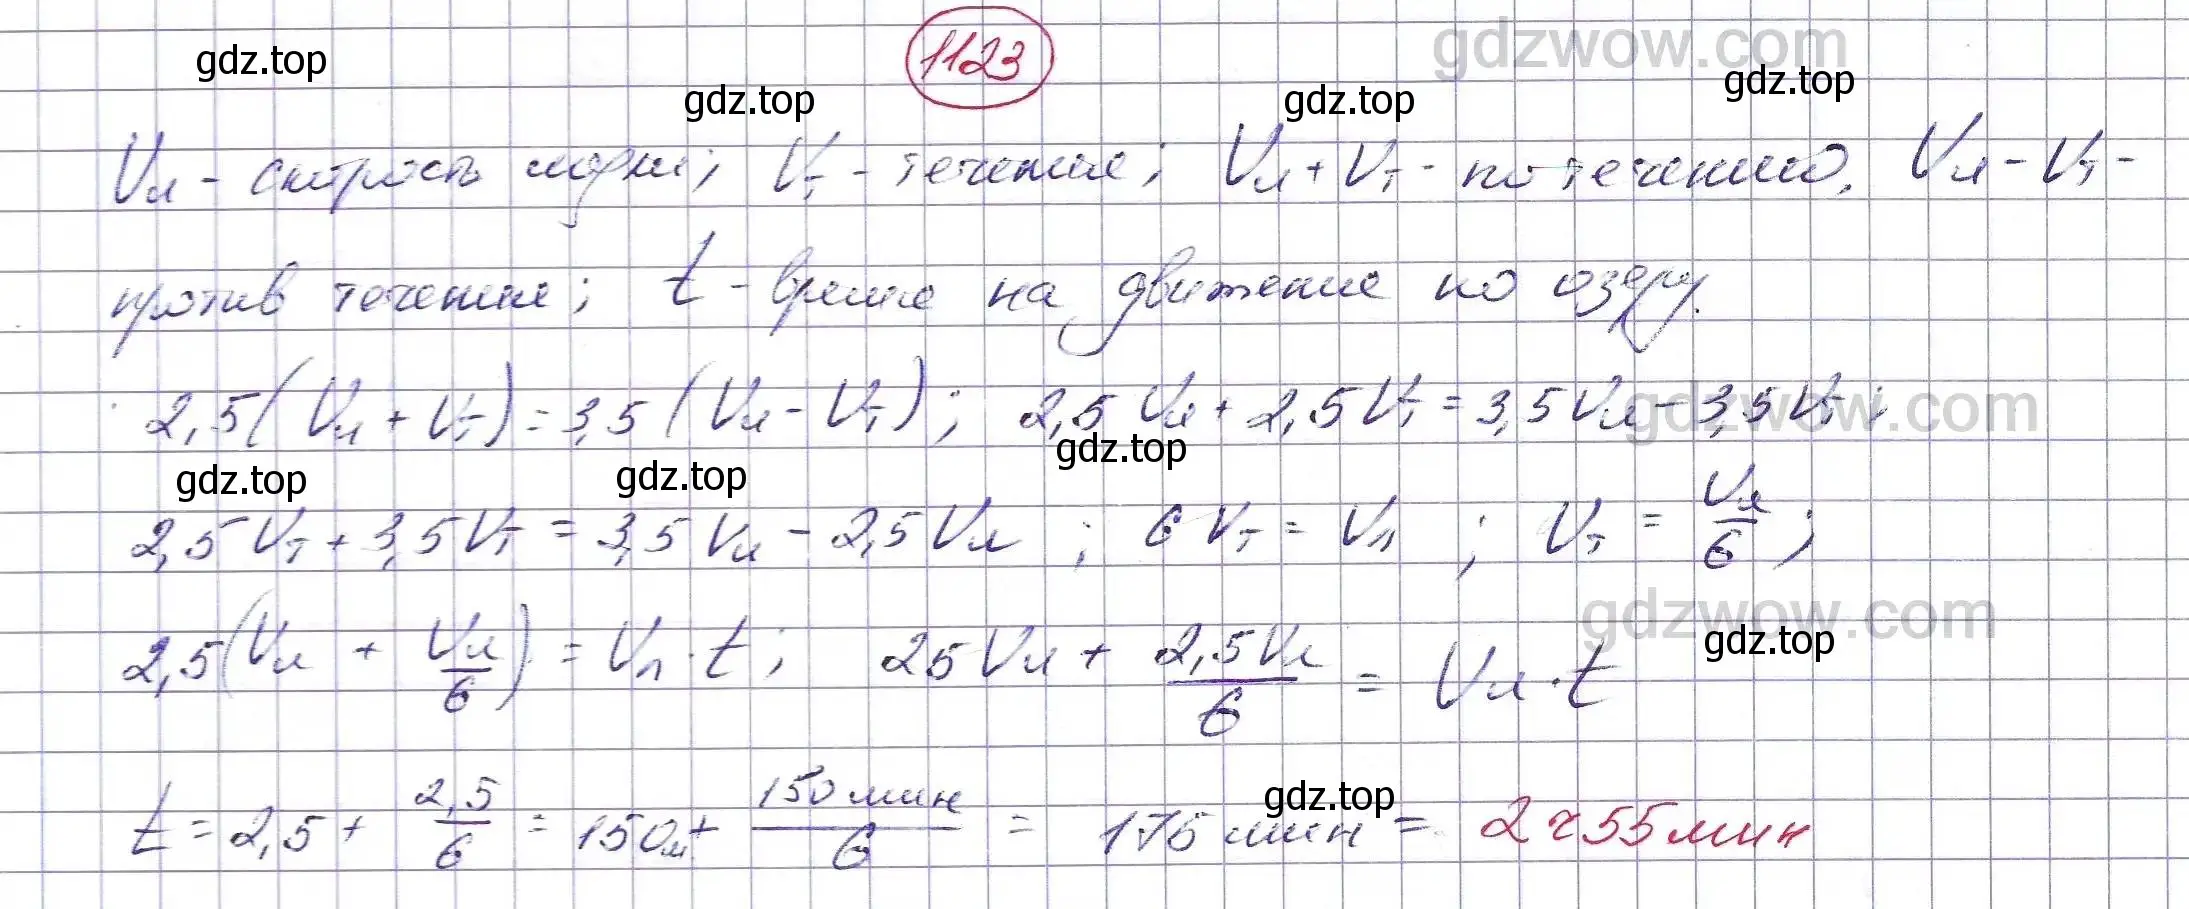 1123
gdzwow.com
gdz.top gdz.top gdz.top gdz.top
Vл - скорость лодки; Vт - течения; Vл + Vт - по течению, Vл - Vт -
против течения; t - время на движение по озеру.
2,5(Vл + Vт) = 3,5(Vл - Vт); 2,5Vл + 2,5Vт = 3,5Vл - 3,5Vт;
gdzwow.com
gdz.top gdz.top gdz.top
2,5Vт + 3,5Vт = 3,5Vл - 2,5Vл; 6Vт = Vл; Vт = Vл/6;
gdzwow.com
gdz.top
2,5(Vл + Vл/6) = Vл · t; 25Vл + 2,5Vл/6 = Vл · t
gdz.top
t = 2,5 + 2,5/6 = 150м + 150мин/6 = 175мин = 2ч55мин